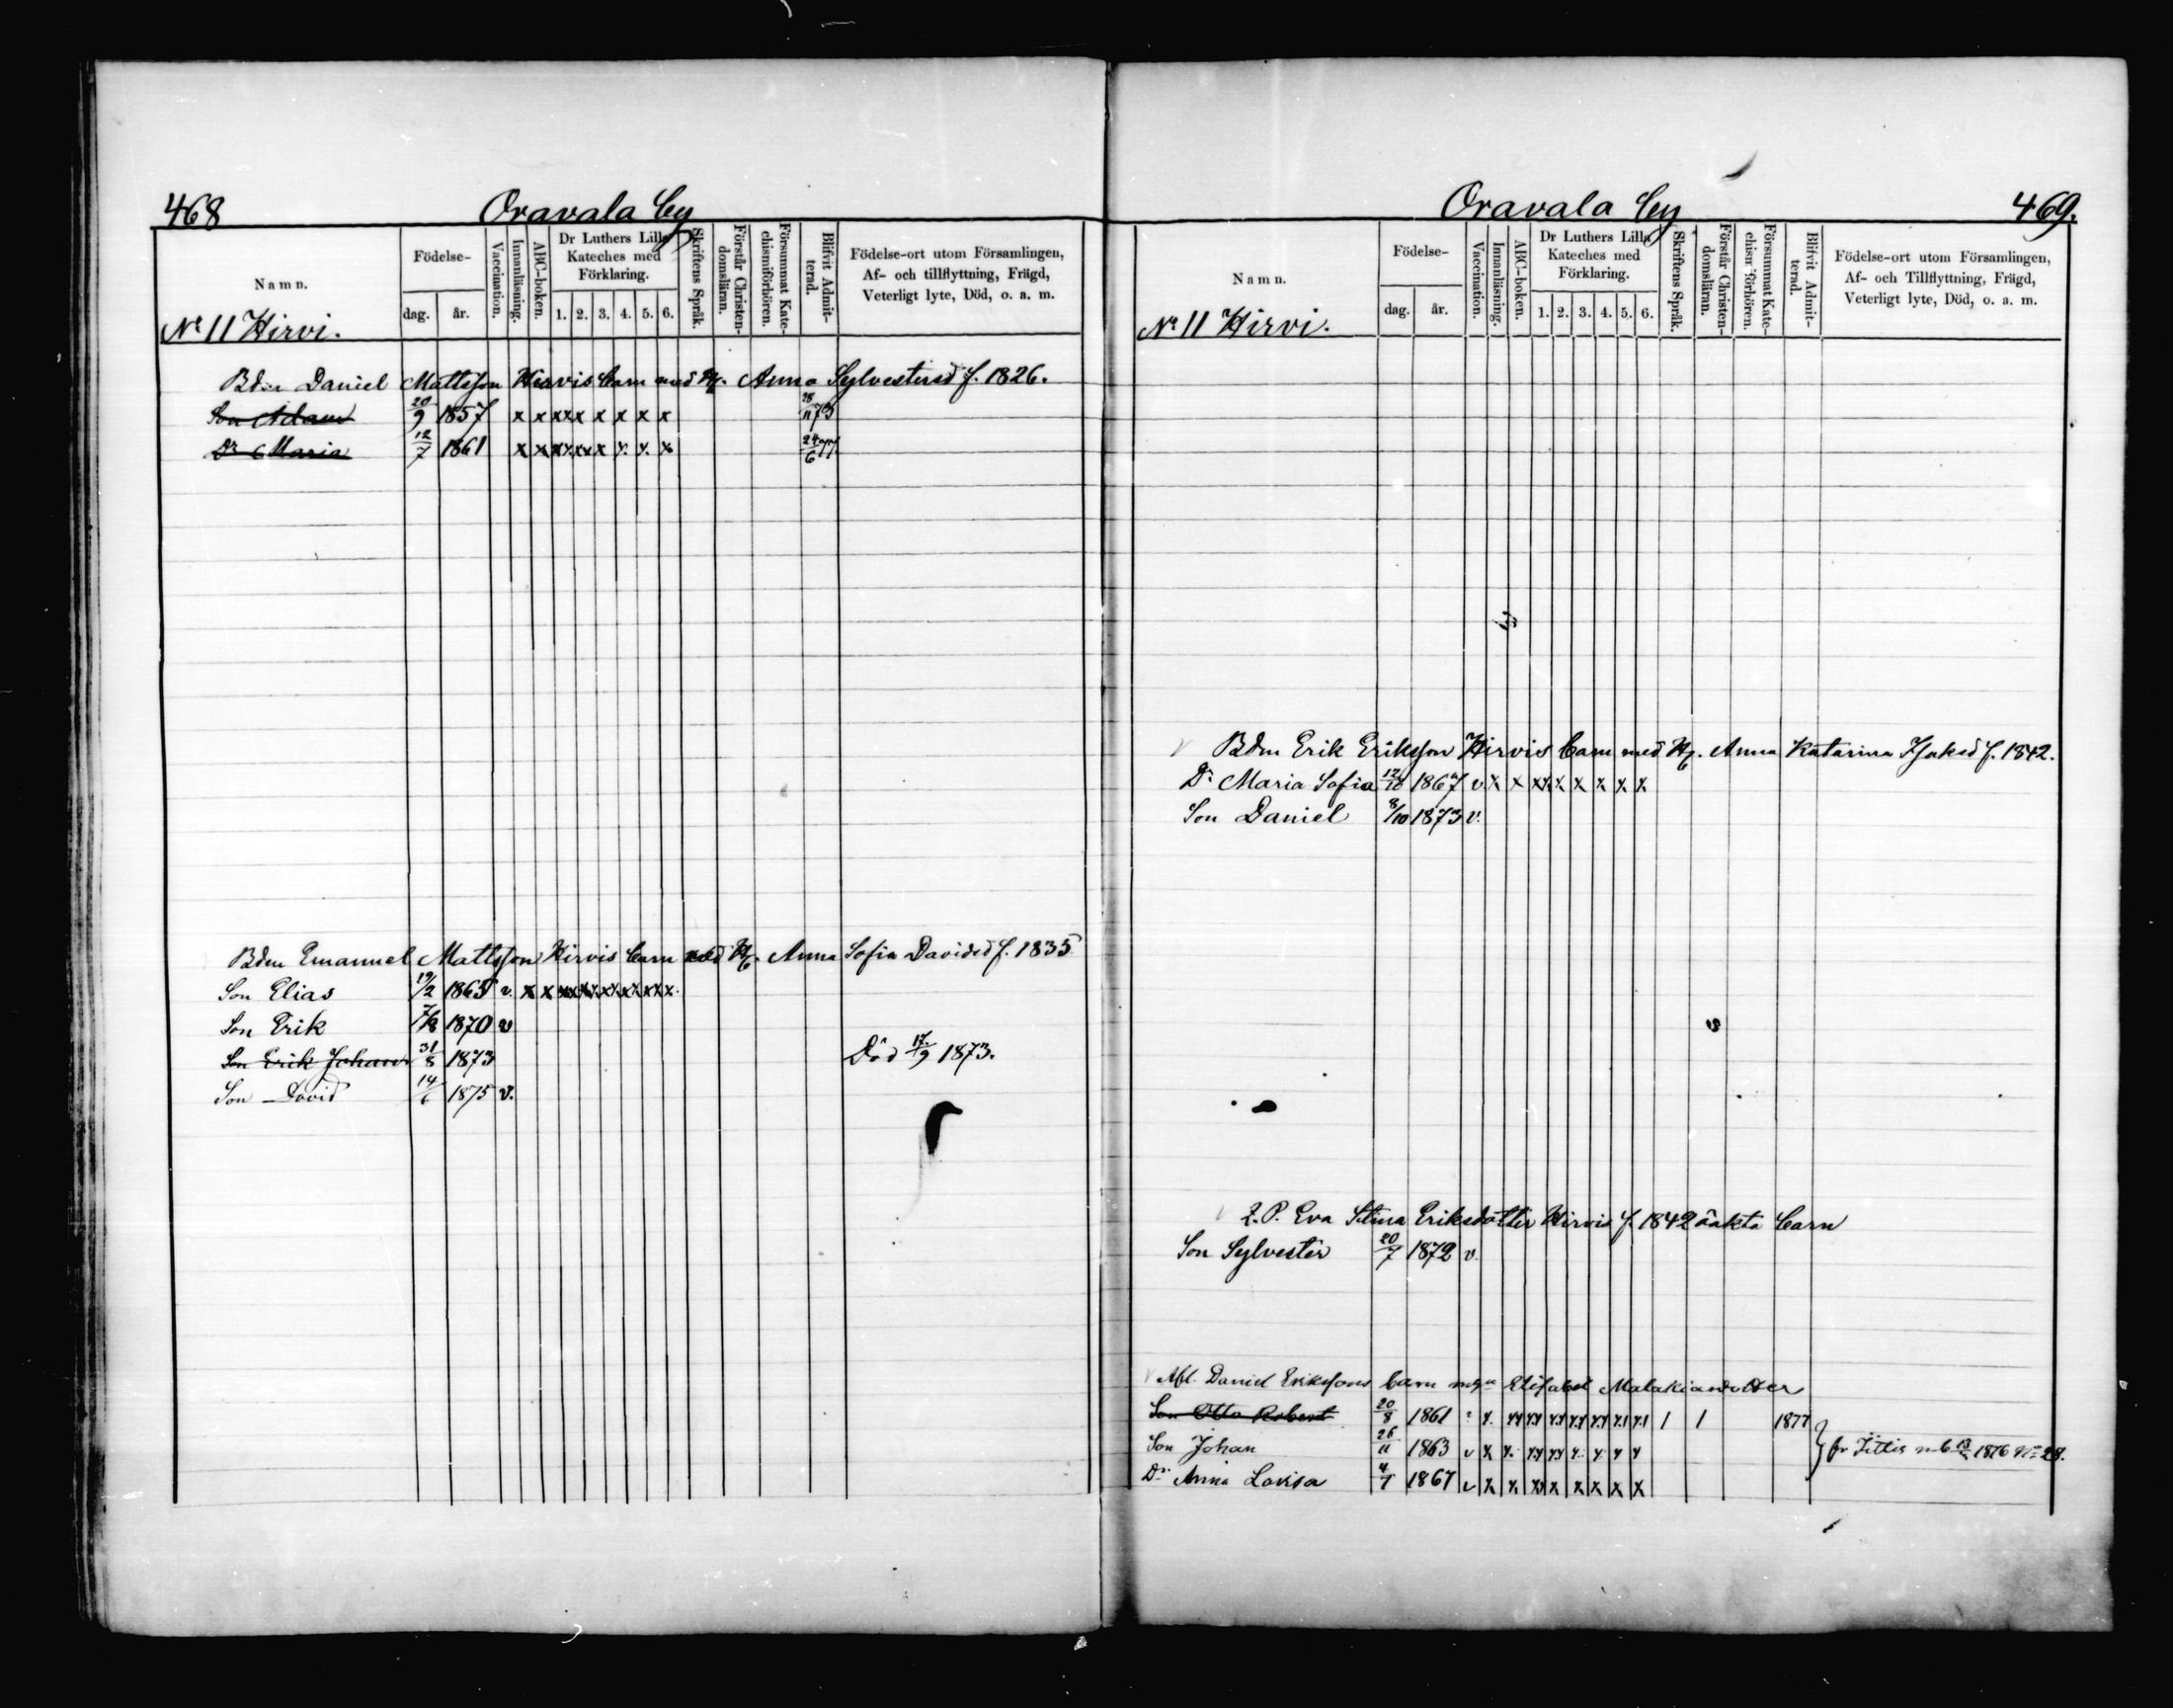 468 Oravala by
Namn.
Födelse-
dag. år.
Vaccination.
Innanläsning.
ABC-boken.
Dr Luthers Lilla Kateches med Förklaring.
1. 2. 3. 4. 5. 6.
Skriftens Språk.
Förstår Christen-domsläran.
Försummat Kate-chismiförhören.
Blifvit Admit-terad.
Födelse-ort utom Församlingen,
Af- och tillflyttning, Frägd,
Veterligt lyte, Död, o. a. m.
No 11 Hirvi.
Bdn Daniel Mattsson Hirvis barn med H. Anna Sylvestersd f. 1826.
Son Adam 20/9 1857 x x x x x x x x x 28/11 73
Dr Maria 12/7 1861 x x x x x x x x x x 24/6 77
Bdn Emanuel Mattsson Hirvis barn med H. Anna Sofia Davidsd f. 1835
Son Elias 19/2 1865 v. x x x x x x x x x x
Son Erik 7/8 1870 v
Son Erik Johan 31/8 1873 Död 17/9 1873.
Son David 14/6 1875 v.
Oravala by 469.
Namn.
Födelse-
dag. år.
Vaccination.
Innanläsning.
ABC-boken.
Dr Luthers Lilla Kateches med Förklaring.
1. 2. 3. 4. 5. 6.
Skriftens Språk.
Förstår Christen-domsläran.
Försummat Kate-chism förhören.
Blifvit Admit-terad.
Födelse-ort utom Församlingen,
Af- och Tillflyttning, Frägd,
Veterligt lyte, Död, o. a. m.
No 11 Hirvi.
Bdn Erik Eriksson Hirvis barn med H. Anna Katarina Isaksd f. 1842.
Dr Maria Sofia 12/10 1867 v x x xx x x x x x
Son Daniel 8/10 1873 v.
Q.P. Eva Stina Eriksdotter Hirvis f. 1842 oäkta barn
Son Sylvester 20/7 1872 v.
Afl. Daniel Erikssons barn Elisabet Malakiasdotter
Son Otto Robert 20/8 1861 1 1 1877
Son Johan 26/11 1863 v x x xx xx x x x x
Dr Anna Lovisa 4/7 1867 v x x xx x x x x x
} fr Jittis 1876 No 28.